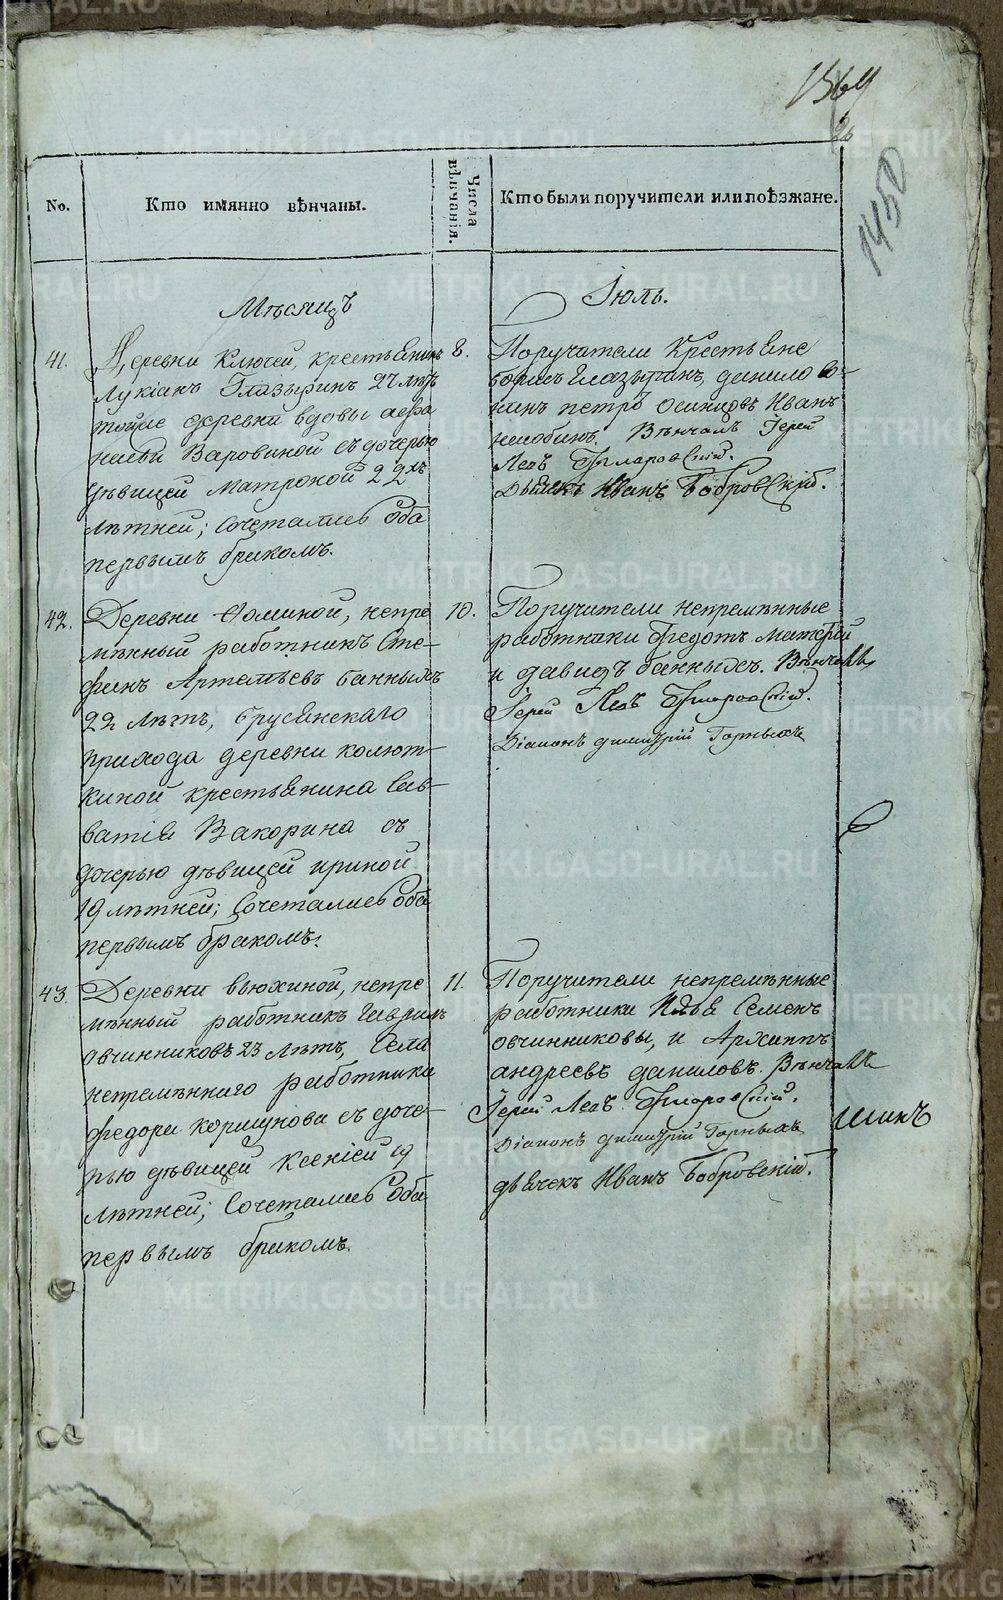 1564
26
1450
No.
Кто имянно вѣнчаны.
Числа вѣнчанія.
Кто были поручители или поѣзжане.
Мѣсяцъ
Іюль.
41.
Деревни Ключей, крестьянинъ
Лукіанъ Глазыринъ 27 лѣтъ
тойже деревни вдовы Агафа
Варовиной съ дочерью
дѣвицей Матроной 22хъ
лѣтней; сочетались оба
первымъ бракомъ.
8.
Поручатели крестьяне
Борисъ Глазыринъ, данило
петръ Осинцовъ Иванъ
Вѣнчалъ Іерей
Левъ
Дьячекъ Иванъ Бобровскій.
42.
Деревни Ѳоминой, непре
мѣнный работникъ Сте-
фанъ Артемьевъ банныхъ
22 лѣтъ, брусянскаго
прихода деревни колют-
киной крестьянина Сав-
ватія Вакорина съ
дочерью дѣвицей ириной
19 лѣтней; сочетались оба
первымъ бракомъ.
10.
Поручители непремѣнные
работники Федотъ Матфей
и давидъ банныхъ. Вѣнчалъ
Іерей Левъ
Діаконъ димитрій Горныхъ
43.
Деревни вьюхиной, непре
мѣнный работникъ Гаврилъ
овчинниковъ 23 лѣтъ, Села
непремѣннаго работника
федора коршунова съ доче-
рью дѣвицей Ксеніей 19
лѣтней; сочетались оба
первымъ бракомъ.
11.
Поручители непремѣнные
работники Семенъ
овчинниковы, и Архиппъ
андреевъ даниловъ. Вѣнчалъ
Іерей Левъ
Діаконъ димитрій Горныхъ
дьячекъ Иванъ Бобровскій.
METRIKI.GASO-URAL.RU